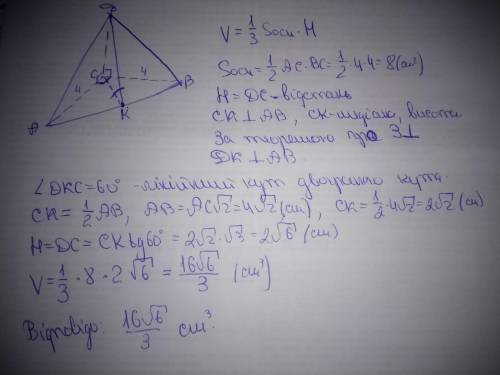 D
C
4
4
A
B
K
V = 1/3 Sосн · H
Sосн = 1/2 AC·BC = 1/2 · 4·4 = 8 (см²)
H = DC - відстань
CK ⊥ AB, CK - медіана, висота
За теоремою про 3⊥
DK ⊥ AB.
∠DKC = 60° - лінійний кут двогранного кута.
CK = 1/2 AB, AB = AC√2 = 4√2 (см), CK = 1/2 · 4√2 = 2√2 (см)
H = DC = CK tg60° = 2√2 · √3 = 2√6 (см)
V = 1/3 · 8 · 2√6 = 16√6/3 (см³)
Відповідь: 16√6/3 см³.